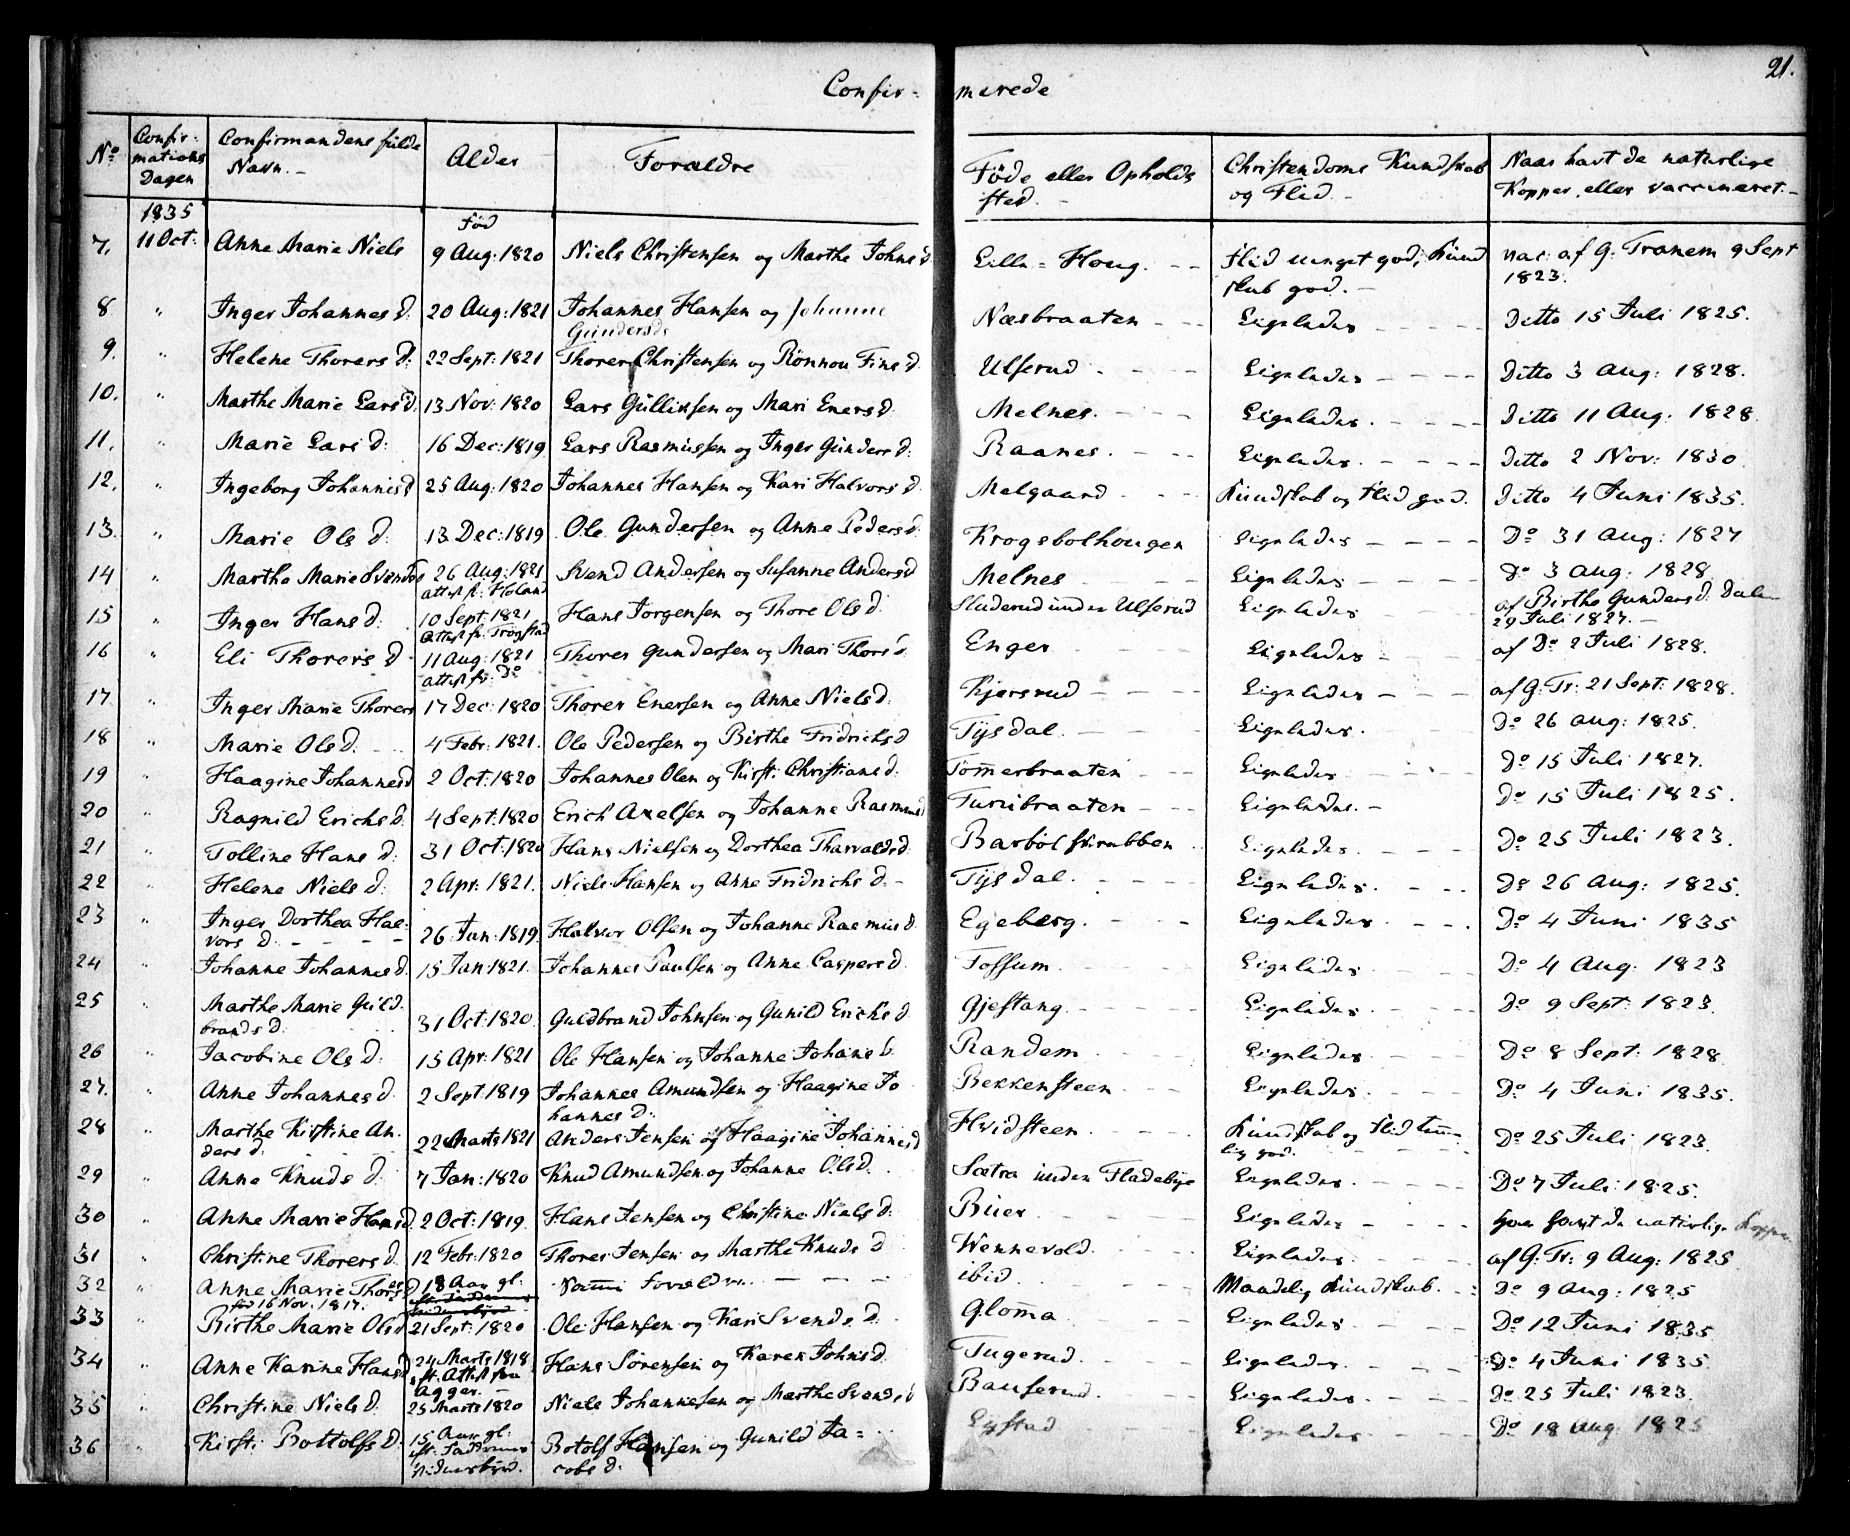 21.
Confir- merede
No | Confir-mations Dagen | Confirmandens fulde Navn.- | Alder | Forældre | Føde eller Opholds sted.- | Christendoms Kundskab og Flid.- | Naar havt de naturlige Kopper, eller vaccineret.-
1835 | Fød
7. | 11 Oct: | Anne Marie Niels | 9 Aug: 1820 | Niels Christensen og Marthe Johnsd | Lille-Houg. | Flid meget god, Kundskab god. - | vac: af G. Tranem 9 Sept 1823.
8 | " | Inger Johannesd: | 20 Aug: 1821 | Johannes Hansen og Johanne Gundersd: | Næsbraaten | Ligeledes | Ditto 15 Juli 1825.
9. | " | Helene Thorersd: | 22 Sept: 1821 | Thorer Christensen og Rønnou Finsd. | Ulserud | Ligeledes | Ditto 3 Aug: 1828.
10. | " | Marthe Marie Larsd: | 13 Nov: 1820 | Lars Gulliksen og Mari Enersd. | Melnes. | Ligeledes. | Ditto 11 Aug: 1828.
11. | " | Marie Larsd: | 16 Dec: 1819 | Lars Rasmussen og Inger Gundersd: | Raanes. | Ligeledes. | Ditto 2 Nov: 1830
12. | " | Ingeborg Johannesd | 25 Aug: 1820 | Johannes Hansen og Kari Halvorsd. | Melgaard | Kundskab og Flid god. | Ditto 4 Juni 1835.
13. | " | Marie Olsd: | 13 Dec: 1819 | Ole Gundersen og Anne Pedersd: | Krogsbølhougen | Ligeledes | Do 31 Aug: 1827
14 | " | Marthe Marie Svendsd | 26 Aug: 1821 attest fr. Høland | Svend Andersen og Susanne Andersd | Melnes | Ligeledes | Do 3 Aug: 1828
15 | " | Inger Hansd: | 10 Sept: 1821 Attest fr. Trøgstad | Hans Jørgensen og Thore Olsd: | Sluderud under Ulserud | Ligeledes | af Birthe Gundersd. Dalen 29 Juli 1827.-
16 | " | Eli Thorersd | 11 Aug: 1821 attest fr: Do | Thorer Gundersen og Mari Thorsd. | Enger | Ligeledes | af Do 2 Juli 1828.
17 | " | Inger Marie Thorers | 17 Dec: 1820 | Thorer Enersen og Anne Nielsd. | Kjærsrud | Ligeledes | af G. Tr: 21 Sept: 1828.
18 | " | Marie Olsd. | 4 Febr: 1821. | Ole Pedersen og Birthe Fridrichsd | Tysdal. | Ligeledes. | Do 26 Aug: 1825.
19 | " | Haagine Johannesd | 2 Oct: 1820 | Johannes Olsen og Kirsti Christiansd: | Tommerbraaten | Ligeledes | Do 15 Juli 1827.
20 | " | Ragnild Erichsd. | 4 Sept: 1820 | Erich Axelsen og Johanne Rasmusd | Furubraaten | Ligeledes. | Do 15 Juli 1825.
21 | " | Tolline Hansd: | 31 Oct: 1820 | Hans Nielsen og Dorthea Tharvaldsd. | Barbøl skrabben | Ligeledes. | Do 25 Juli 1823.
22 | " | Helene Nielsd: | 2 Apr: 1821. | Niels Hansen og Anne Fridrichsd.- | Tysdal. | Ligeledes. | Do 26 Aug: 1825.
23 | " | Inger Dorthea Halvorsd. | 26 Jan: 1819. | Halvor Olsen og Johanne Rasmusd. | Egeberg. | Ligeledes. | Do 4 Juni 1835
24 | " | Johanne Johannesd. | 15 Jan: 1821. | Johannes Paulsen og Anne Caspersd. | Fossum. | Ligeledes. | Do 4 Aug: 1823
25 | " | Marthe Marie Guldbrandsd. | 31 Oct: 1820. | Guldbrand Johnsen og Gunild Erichsd. | Gjestang. | Ligeledes. | Do 9 Sept: 1823.
26 | " | Jacobine Olsd: | 15 Apr: 1821 | Ole Hansen og Johanne Johansd. | Randem | Ligeledes. | Do 8 Sept: 1828.
27. | " | Anne Johannesd. | 2 Sept: 1819 | Johannes Amundsen og Haagine Johannesd: | Bekkensteen | Ligeledes. | Do 4 Juni 1835.
28 | " | Marthe Kirstine Andersd. | 22 Marts 1821 | Anders Jensen og Haagine Johannesd | Hvidsteen | Kundskab og Flid temmelig god. | Do 25 Juli 1823.
29 | " | Anne Knudsd: | 7 Jan: 1820 | Knud Amundsen og Johanne Olsd. | Sætra under Fladebye | Ligeledes. | Do 7 Juli 1825.
30 | " | Anne Marie Hansd. | 2 Oct: 1819. | Hans Jensen og Christine Nielsd: | Buer | Ligeledes | har havt de naturlige Kopper
31 | " | Christine Thorersd. | 12 Febr: 1820 | Thorer Jensen og Marthe Knudsd | Wennevold. | Ligeledes. | af G. Tr: 9 Aug: 1825.
32 | " | Anne Marie Thorersd fød 16 Nov: 1817. | 18 Aar gl: | Samme Forældre. | ibid | Maadelig Kundskab. | Do 9 Aug: 1825
33 | " | Birthe Marie Olsd | 21 Sept: 1820 | Ole Hansen og Kari Svendsd. | Glomma | Ligeledes | Do 12 Juni 1835
34 | " | Anne Karine Hansd | 24 Marts 1818 eft. Attest fra Agger. | Hans Sørensen og Karen Johnsd. | Tugerud. | Ligeledes. | Do 4 Juni 1835.
35 | " | Christine Nielsd. | 25 Marts 1820 | Niels Johannesen og Marthe Svendsd | Bauserud. | Ligeledes | Do 25 Juli 1823.
36 | " | Kirsti Bottolfsd. | 15 Aar gl: | Botolf Hansen og Gunild Jacobsd. | Lystad | Ligeledes. | Do 18 Aug 1825